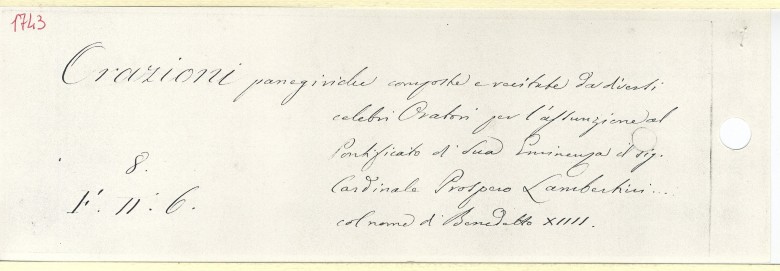 1743
Orazioni panegiriche composte e recitate da diversi
celebri Oratori per l'assunzione al
Pontificato di Sua Eminenza il sig.
8.
Cardinale Prospero Lambertini...
1'. 11'. 6.
col nome di Benedetto XIIII.